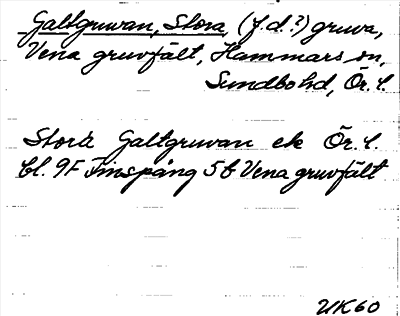 Galtgruvan, Stora, (f.d.?) gruva,
Vena gruvfält, Hammars sn,
Sundbo hd, Ör. l.
Stora Galtgruvan ek Ör. l.
bl. 9F Finspång 5b Vena gruvfält
UK60